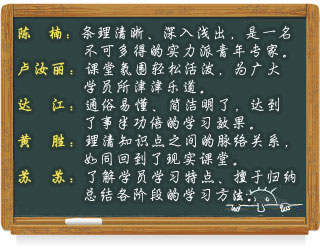 陈　楠：条理清晰、深入浅出，是一名
不可多得的实力派青年专家。
卢汝丽：课堂氛围轻松活泼，为广大
学员所津津乐道。
达　江：通俗易懂、简洁明了，达到
了事半功倍的学习效果。
黄　胜：理清知识点之间的脉络关系，
如同回到了现实课堂。
苏　苏：了解学员学习特点、擅于归纳
总结各阶段的学习方法。